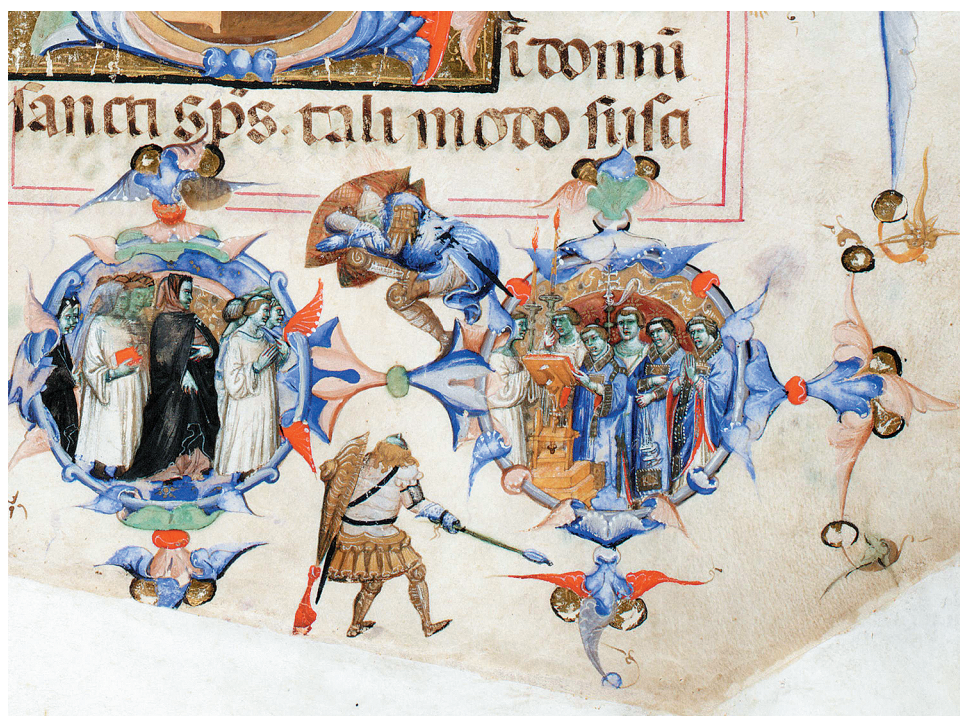 i domni
sancti sp̄s. tali modo susci